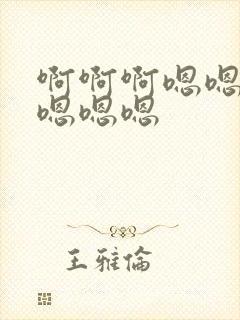 啊啊啊嗯嗯
嗯嗯嗯
王雅倫